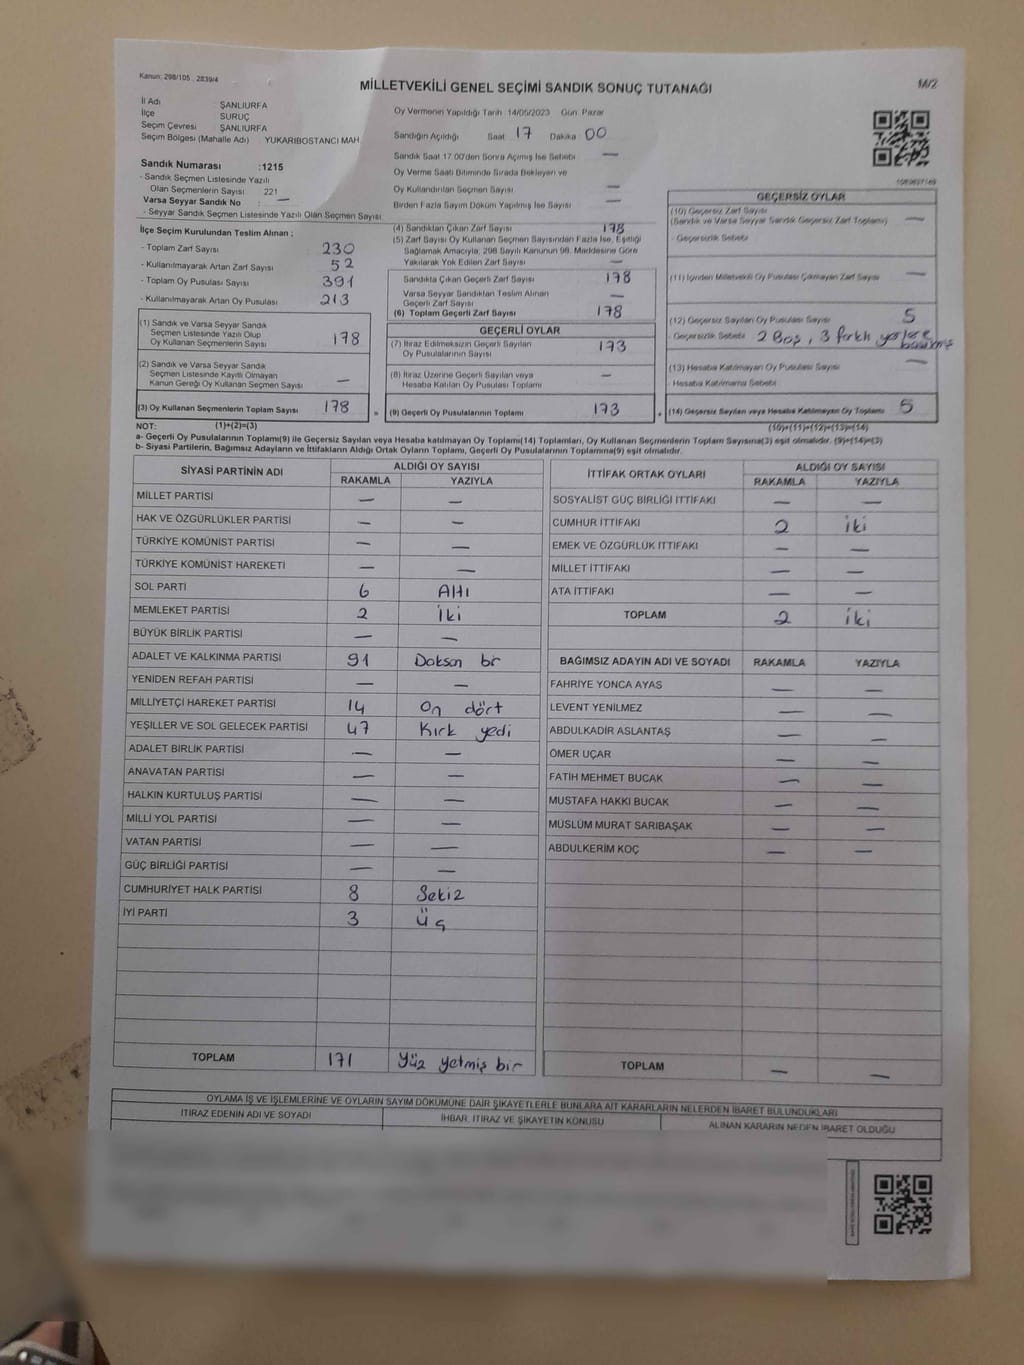 Kanun: 298/105 , 2839/4
MİLLETVEKİLİ GENEL SEÇİMİ SANDIK SONUÇ TUTANAĞI
M/2
İl Adı : ŞANLIURFA
İlçe : SURUÇ
Seçim Çevresi : ŞANLIURFA
Seçim Bölgesi (Mahalle Adı) YUKARIBOSTANCI MAH.
Sandık Numarası :1215
- Sandık Seçmen Listesinde Yazılı
Olan Seçmenlerin Sayısı 221
Varsa Seyyar Sandık No : —
- Seyyar Sandık Seçmen Listesinde Yazılı Olan Seçmen Sayısı
Oy Vermenin Yapıldığı Tarih 14/05/2023 Gün Pazar
Sandığın Açıldığı Saat 17 Dakika 00
Sandık Saat 17:00'den Sonra Açımış İse Sebebi —
Oy Verme Saati Bitiminde Sırada Bekleyen ve
Oy Kullandırılan Seçmen Sayısı —
Birden Fazla Sayım Döküm Yapılmış İse Sayısı —
İlçe Seçim Kurulundan Teslim Alınan ;
- Toplam Zarf Sayısı 230
- Kullanılmayarak Artan Zarf Sayısı 52
- Toplam Oy Pusulası Sayısı 391
- Kullanılmayarak Artan Oy Pusulası 213
(1) Sandık ve Varsa Seyyar Sandık
Seçmen Listesinde Yazılı Olup
Oy Kullanan Seçmenlerin Sayısı 178
(2) Sandık ve Varsa Seyyar Sandık
Seçmen Listesinde Kayıtlı Olmayan
Kanun Gereği Oy Kullanan Seçmen Sayısı —
(3) Oy Kullanan Seçmenlerin Toplam Sayısı 178
(4) Sandıktan Çıkan Zarf Sayısı 178
(5) Zarf Sayısı Oy Kullanan Seçmen Sayısından Fazla İse, Eşitliği
Sağlamak Amacıyla, 298 Sayılı Kanunun 98. Maddesine Göre
Yakılarak Yok Edilen Zarf Sayısı —
Sandıkta Çıkan Geçerli Zarf Sayısı 178
Varsa Seyyar Sandıktan Teslim Alınan
Geçerli Zarf Sayısı —
(6) Toplam Geçerli Zarf Sayısı 178
GEÇERLİ OYLAR
(7) İtiraz Edilmeksizin Geçerli Sayılan
Oy Pusulalarının Sayısı 173
(8) İtiraz Üzerine Geçerli Sayılan veya
Hesaba Katılan Oy Pusulası Toplamı —
= (9) Geçerli Oy Pusulalarının Toplamı 173
GEÇERSİZ OYLAR
(10) Geçersiz Zarf Sayısı
(Sandık ve Varsa Seyyar Sandık Geçersiz Zarf Toplamı) —
- Geçersizlik Sebebi
(11) İçinden Milletvekili Oy Pusulası Çıkmayan Zarf Sayısı —
(12) Geçersiz Sayılan Oy Pusulası Sayısı 5
- Geçersizlik Sebebi 2 Boş, 3 farklı yerlere
(13) Hesaba Katılmayan Oy Pusulası Sayısı —
- Hesaba Katılmama Sebebi
+ (14) Geçersiz Sayılan veya Hesaba Katılmayan Oy Toplamı 5
NOT: (1)+(2)=(3)
(10)+(11)+(12)+(13)=(14)
a- Geçerli Oy Pusulalarının Toplamı(9) ile Geçersiz Sayılan veya Hesaba katılmayan Oy Toplamı(14) Toplamları, Oy Kullanan Seçmenlerin Toplam Sayısına(3) eşit olmalıdır. (9)+(14)=(3)
b- Siyasi Partilerin, Bağımsız Adayların ve İttifakların Aldığı Ortak Oyların Toplamı, Geçerli Oy Pusulalarının Toplamına(9) eşit olmalıdır.
SİYASİ PARTİNİN ADI ALDIĞI OY SAYISI
RAKAMLA YAZIYLA
MİLLET PARTİSİ — —
HAK VE ÖZGÜRLÜKLER PARTİSİ — —
TÜRKİYE KOMÜNİST PARTİSİ — —
TÜRKİYE KOMÜNİST HAREKETİ — —
SOL PARTİ 6 Altı
MEMLEKET PARTİSİ 2 İki
BÜYÜK BİRLİK PARTİSİ — —
ADALET VE KALKINMA PARTİSİ 91 Doksan bir
YENİDEN REFAH PARTİSİ — —
MİLLİYETÇİ HAREKET PARTİSİ 14 On dört
YEŞİLLER VE SOL GELECEK PARTİSİ 47 Kırk yedi
ADALET BİRLİK PARTİSİ — —
ANAVATAN PARTİSİ — —
HALKIN KURTULUŞ PARTİSİ — —
MİLLİ YOL PARTİSİ — —
VATAN PARTİSİ — —
GÜÇ BİRLİĞİ PARTİSİ — —
CUMHURİYET HALK PARTİSİ 8 Sekiz
İYİ PARTİ 3 Üç
TOPLAM 171 Yüz yetmiş bir
İTTİFAK ORTAK OYLARI ALDIĞI OY SAYISI
RAKAMLA YAZIYLA
SOSYALİST GÜÇ BİRLİĞİ İTTİFAKI — —
CUMHUR İTTİFAKI 2 iki
EMEK VE ÖZGÜRLÜK İTTİFAKI — —
MİLLET İTTİFAKI — —
ATA İTTİFAKI — —
TOPLAM 2 iki
BAĞIMSIZ ADAYIN ADI VE SOYADI RAKAMLA YAZIYLA
FAHRİYE YONCA AYAS — —
LEVENT YENİLMEZ — —
ABDULKADİR ASLANTAŞ — —
ÖMER UÇAR — —
FATİH MEHMET BUCAK — —
MUSTAFA HAKKI BUCAK — —
MÜSLÜM MURAT SARIBAŞAK — —
ABDULKERİM KOÇ — —
TOPLAM — —
OYLAMA İŞ VE İŞLEMLERİNE VE OYLARIN SAYIM DÖKÜMÜNE DAİR ŞİKAYETLERLE BUNLARA AİT KARARLARIN NELERDEN İBARET BULUNDUKLARI
İTİRAZ EDENİN ADI VE SOYADI İHBAR, İTİRAZ VE ŞİKAYETİN KONUSU ALINAN KARARIN NEDEN İBARET OLDUĞU